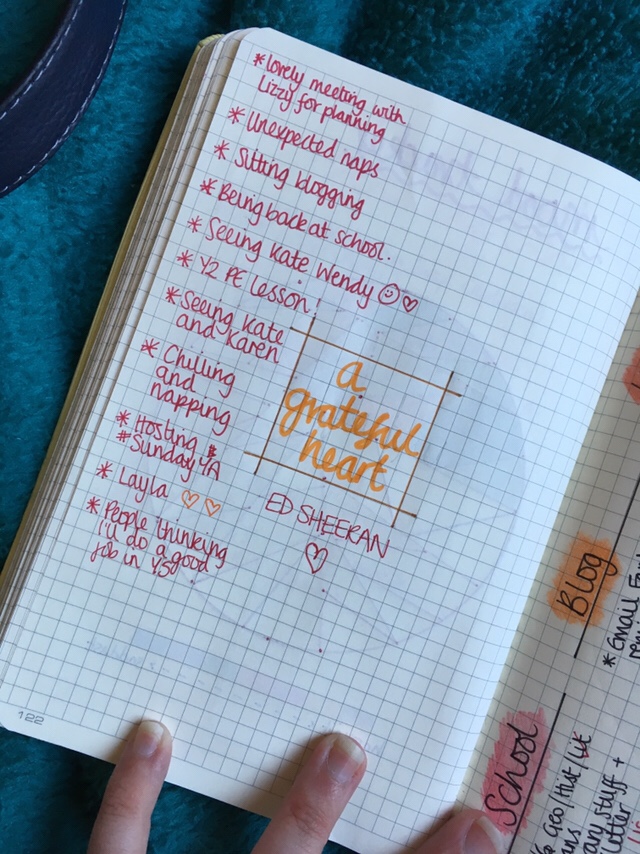 *lovely meeting with
Lizzy for planning
* Unexpected naps
* Sitting blogging
* Being back at school.
* Seeing Kate Wendy ☺♡
* Y2 PE Lesson!
* Seeing Kate
and Karen
* Chilling
and
napping
* Hosting
#SundayYA
* Layla ♡♡
* People thinking
i'll do a good
job in Y5
a
grateful
heart
ED SHEERAN
♡
122
Blog
* Email
School
Geo/Hist/Lit
stuff +